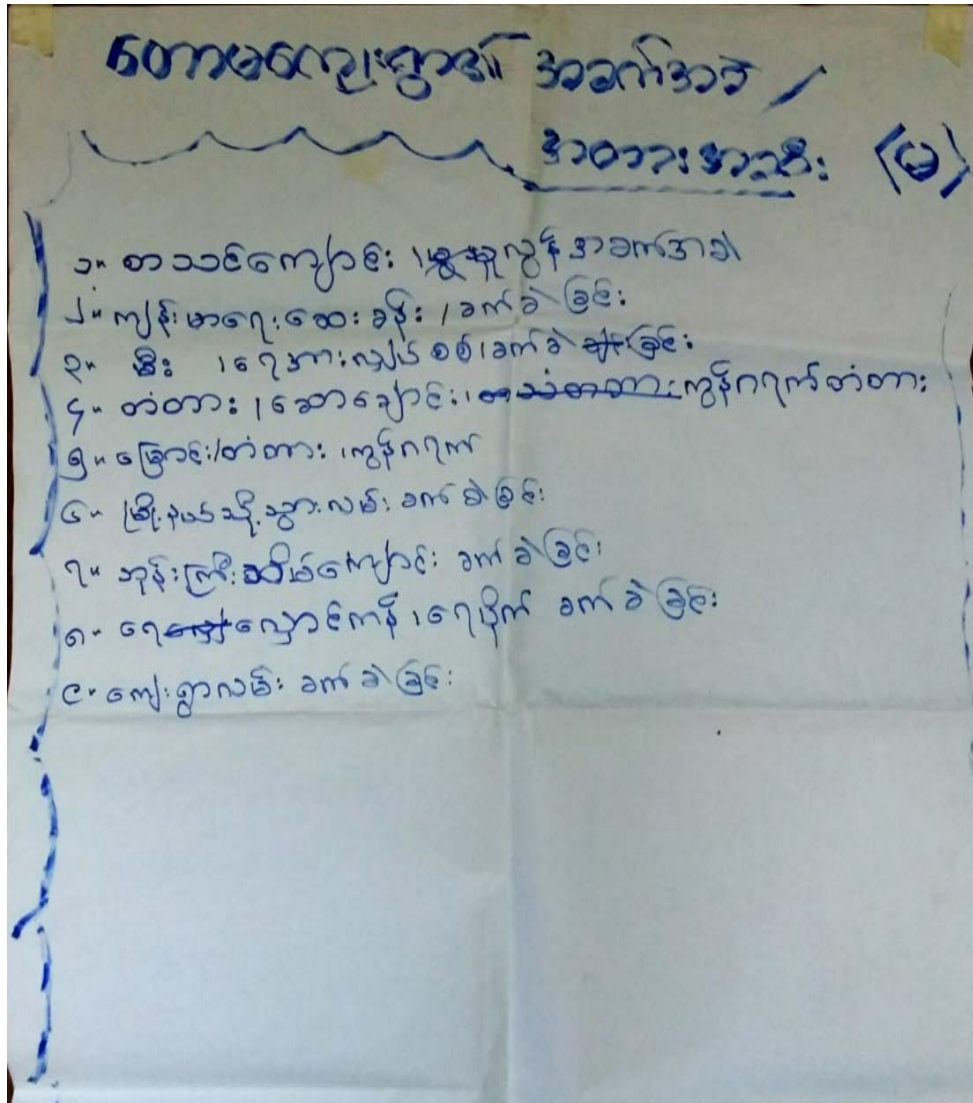 တောမကျေးရွာ၏ အခက်အခဲ /
အတားအဆီး (မ)
၁။ စာသင်ကျောင်း ၊ မူလွန် အခက်အခဲ
၂။ ကျန်းမာရေးဆေးခန်း / ခက်ခဲခြင်း
၃။ မီး ၊ ရေအားလျှပ်စစ် ၊ ခက်ခဲခြင်း
၄။ တံတား ၊ ဆောချောင်း ၊ ကွန်ကရက်တံတား
၅။ မြောင်း/တံတား ၊ ကွန်ကရက်
၆။ မြို့နယ်သို့သွားလမ်း ခက်ခဲခြင်း
၇။ ဘုန်းကြီးသိမ်ကျောင်း ခက်ခဲခြင်း
၈။ ရေလှောင်ကန် ၊ ရေပိုက် ခက်ခဲခြင်း
၉။ ကျေးရွာလမ်း ခက်ခဲခြင်း